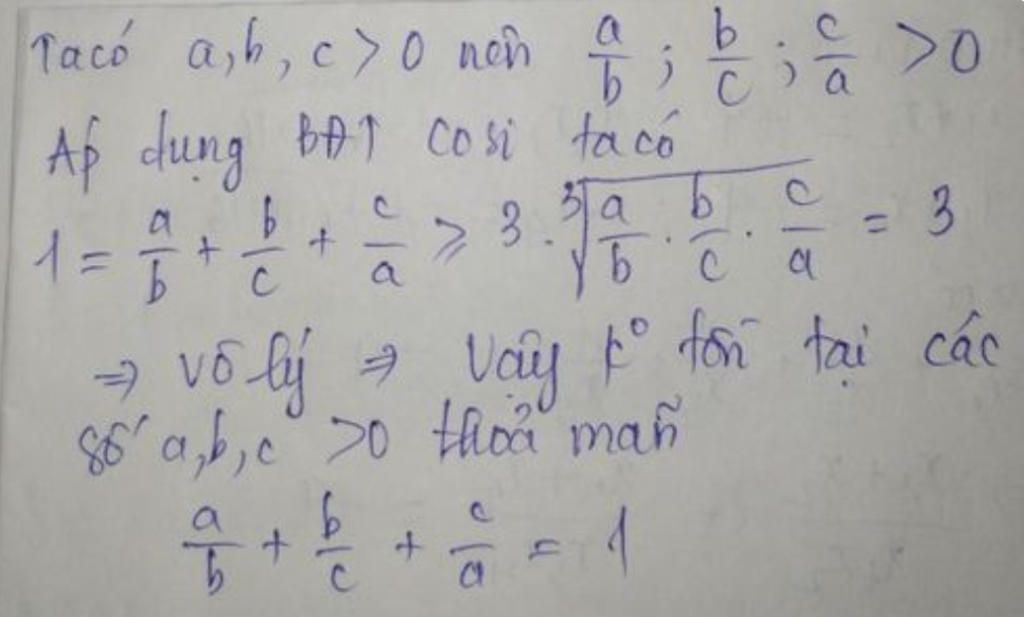 Ta có a, b, c > 0 nên a/b ; b/c ; c/a > 0
Áp dụng BĐT Cosi ta có
1 = a/b + b/c + c/a ≥ 3 . ∛(a/b . b/c . c/a) = 3
⇒ vô lý ⇒ Vậy k° tồn tại các
số a, b, c > 0 thoả mãn
a/b + b/c + c/a = 1